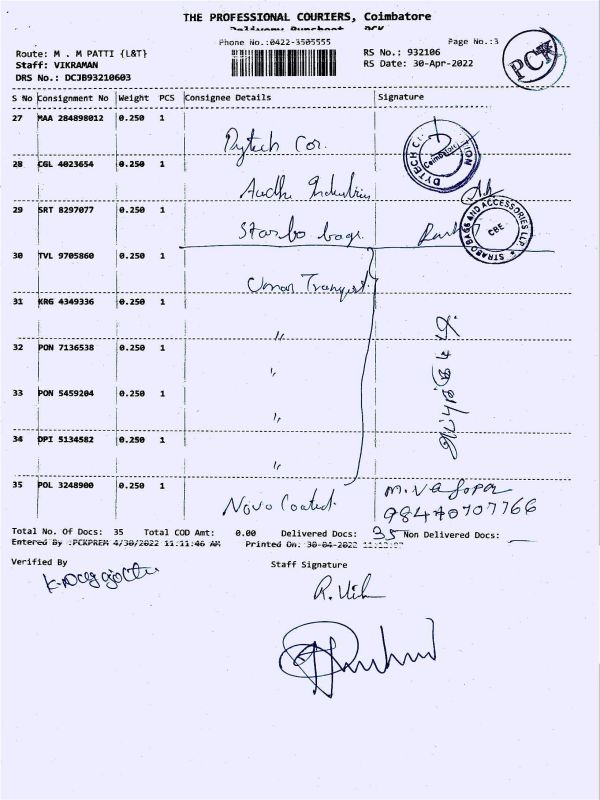 THE PROFESSIONAL COURIERS, Coimbatore
Delivery Runsheet PCK
Phone No.:0422-3505555 Page No.:3
Route: M . M PATTI {L&T} RS No.: 932106
Staff: VIKRAMAN RS Date: 30-Apr-2022
DRS No.: DCJB93210603
PCK
S No Consignment No Weight PCS Consignee Details Signature
27 MAA 284898012 0.250 1 Dytech Cor.
DYTECH Coimbatore
28 CGL 4023654 0.250 1 Aadhi Industries
29 SRT 8297077 0.250 1 Starbo bags
STRABO BAGS AND ACCESSORIES LLP. CBE
30 TVL 9705860 0.250 1 Uman Transport.
31 KRG 4349336 0.250 1 "
32 PON 7136538 0.250 1 "
33 PON 5459204 0.250 1 "
34 DPI 5134582 0.250 1 "
35 POL 3248900 0.250 1 Novo Coated.
98440707766
Total No. Of Docs: 35 Total COD Amt: 0.00 Delivered Docs: 35 Non Delivered Docs:
Entered By :PCKPREM 4/30/2022 11:11:46 AM Printed On: 30-04-2022
Verified By Staff Signature